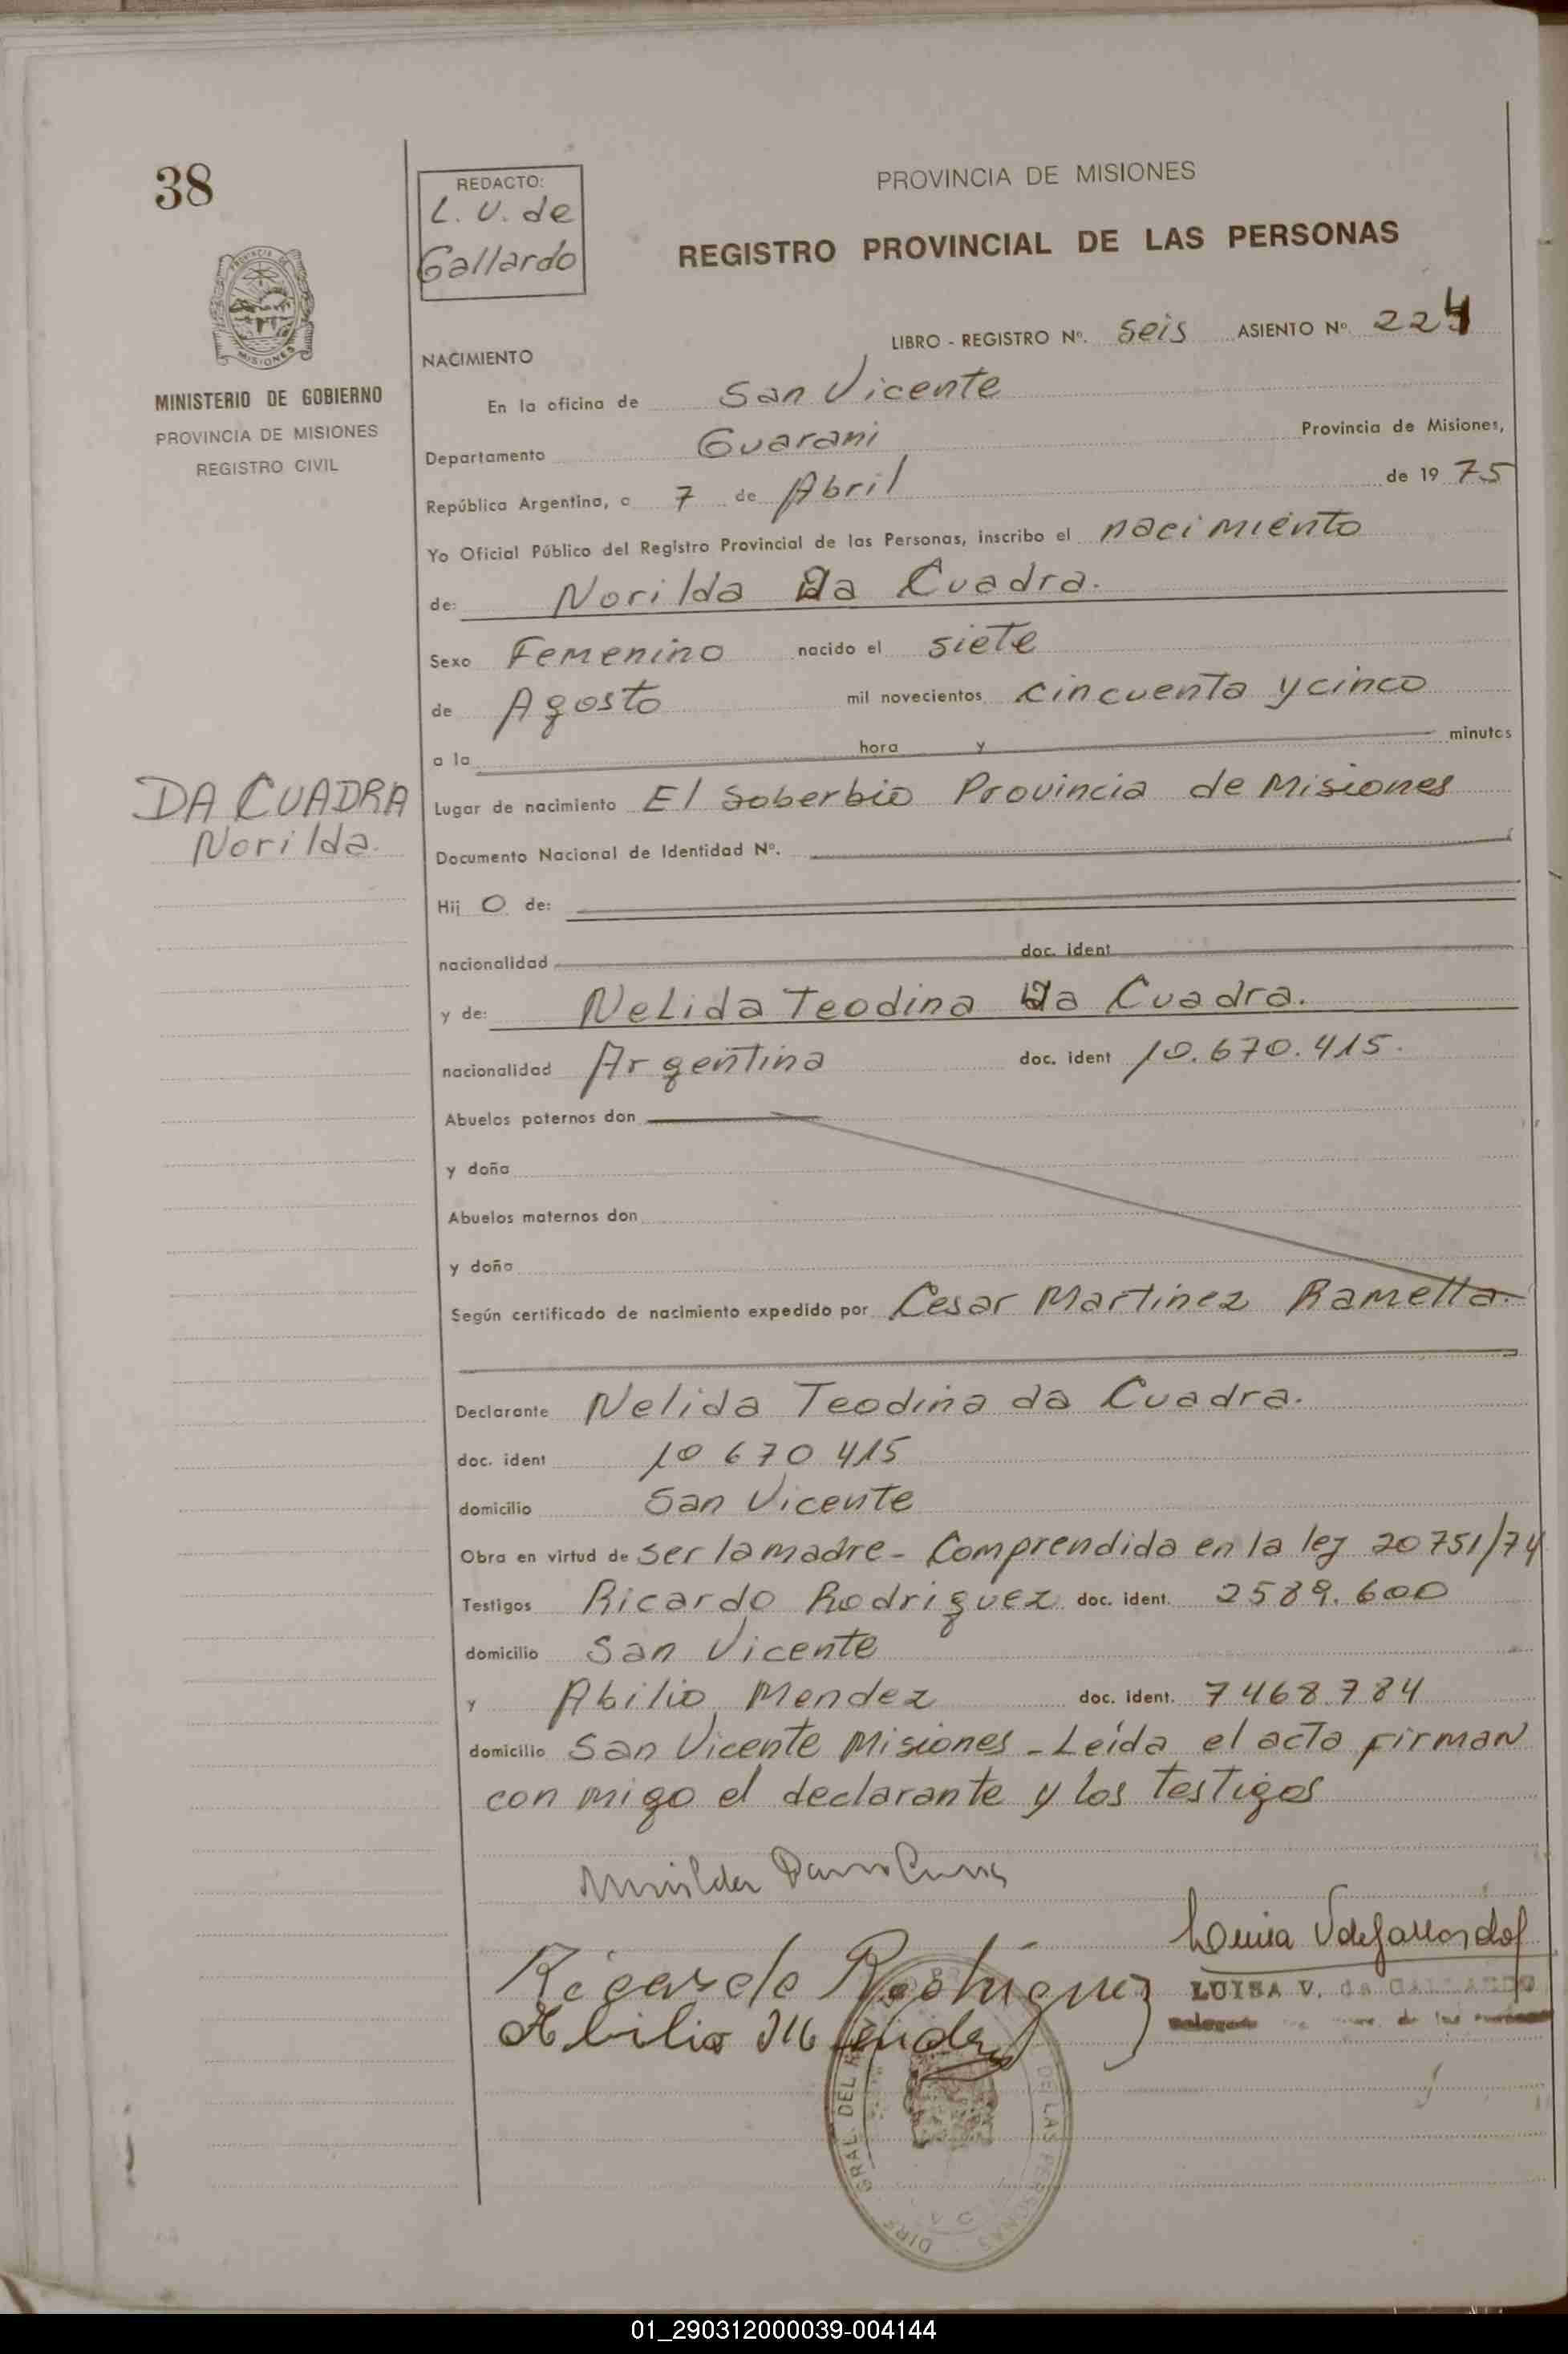 38
REDACTO:
L. V. de
Gallardo
PROVINCIA DE MISIONES
REGISTRO PROVINCIAL DE LAS PERSONAS
MISIONES
MINISTERIO DE GOBIERNO
PROVINCIA DE MISIONES
REGISTRO CIVIL
LIBRO - REGISTRO Nº. Seis ASIENTO Nº. 224
NACIMIENTO
En la oficina de San Vicente
Departamento Guarani Provincia de Misiones,
República Argentina, a 7 de Abril de 19 75
Yo Oficial Público del Registro Provincial de las Personas, inscribo el nacimiento
de: Norilda Da Cuadra.
Sexo Femenino nacido el siete
de Agosto mil novecientos cincuenta y cinco
a la hora y minutos
DA CUADRA
Norilda.
Lugar de nacimiento El Soberbio Provincia de Misiones
Documento Nacional de Identidad Nº.
Hij O de:
nacionalidad doc. ident
y de: Nelida Teodina Da Cuadra.
nacionalidad Argentina doc. ident 10.670.415.
Abuelos paternos don
y doña
Abuelos maternos don
y doña
Según certificado de nacimiento expedido por Cesar Martinez Ramella.
Declarante Nelida Teodina da Cuadra.
doc. ident 10 670 415
domicilio San Vicente
Obra en virtud de ser la madre - Comprendida en la ley 20751/74
Testigos Ricardo Rodriguez doc. ident. 2589.600
domicilio San Vicente
y Abilio Mendez doc. ident. 7468.784
domicilio San Vicente Misiones - Leída el acta firman
con migo el declarante y los testigos
Luisa V de Gallardo
Ricardo Rodriguez
LUISA V. de GALLARDO
Abilio Mendez
GRAL. DEL
DE LAS PERSONAS
01_290312000039-004144